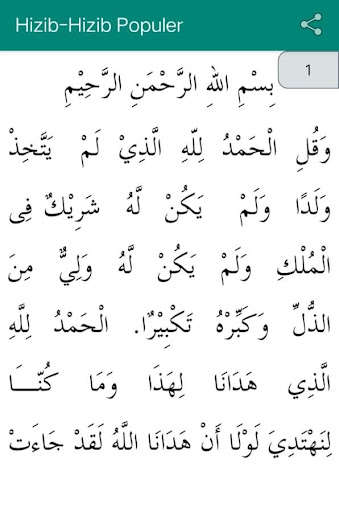 Hizib-Hizib Populer
1
بِسْمِ اللهِ الرَّحْمَنِ الرَّحِيْمِ
وَقُلِ الْحَمْدُ لِلّهِ الَّذِيْ لَمْ يَتَّخِذْ
وَلَدًا وَلَمْ يَكُنْ لَّهُ شَرِيْكٌ فِى
الْمُلْكِ وَلَمْ يَكُنْ لَّهُ وَلِيٌّ مِنَ
الذُّلِّ وَكَبِّرْهُ تَكْبِيْرًا. الْحَمْدُ لِلَّهِ
الَّذِي هَدَانَا لِهَذَا وَمَا كُنَّــا
لِنَهْتَدِيَ لَوْلَا أَنْ هَدَانَا اللَّهُ لَقَدْ جَاءَتْ